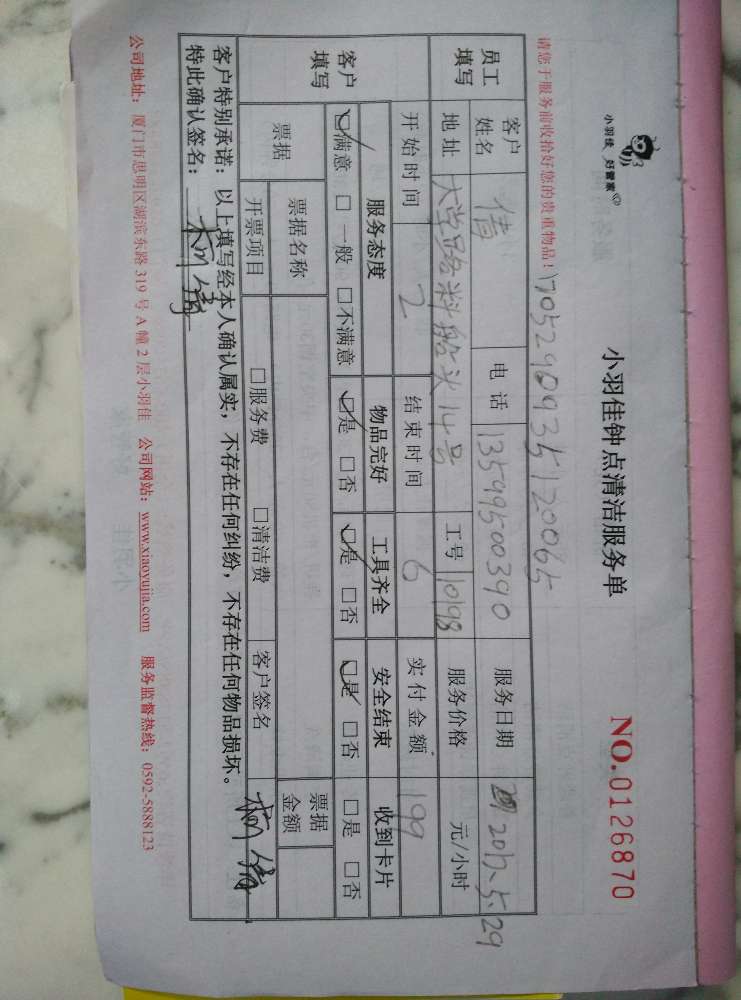 小羽佳 好管家
小羽佳钟点清洁服务单
NO.0126870
请您于服务前收拾好您的贵重物品！
1705290935120065
员工填写 客户姓名 倩 电话 13599500390 服务日期 2017.5.29
地址 大学路料船头14号 工号 10198 服务价格 元/小时
客户填写 开始时间 2 结束时间 6 实付金额 199
服务态度 物品完好 工具齐全 安全结束 收到卡片
☑满意 □一般 □不满意 ☑是 □否 ☑是 □否 ☑是 □否 □是 □否
票据 票据名称 票据金额
开票项目 □服务费 □清洁费 客户签名 柳倩
客户特别承诺：以上填写经本人确认属实，不存在任何纠纷，不存在任何物品损坏。
特此确认签名：柳倩
公司地址：厦门市思明区湖滨东路 319 号 A 幢 2 层小羽佳 公司网站：www.xiaoyujia.com 服务监督热线：0592-5888123